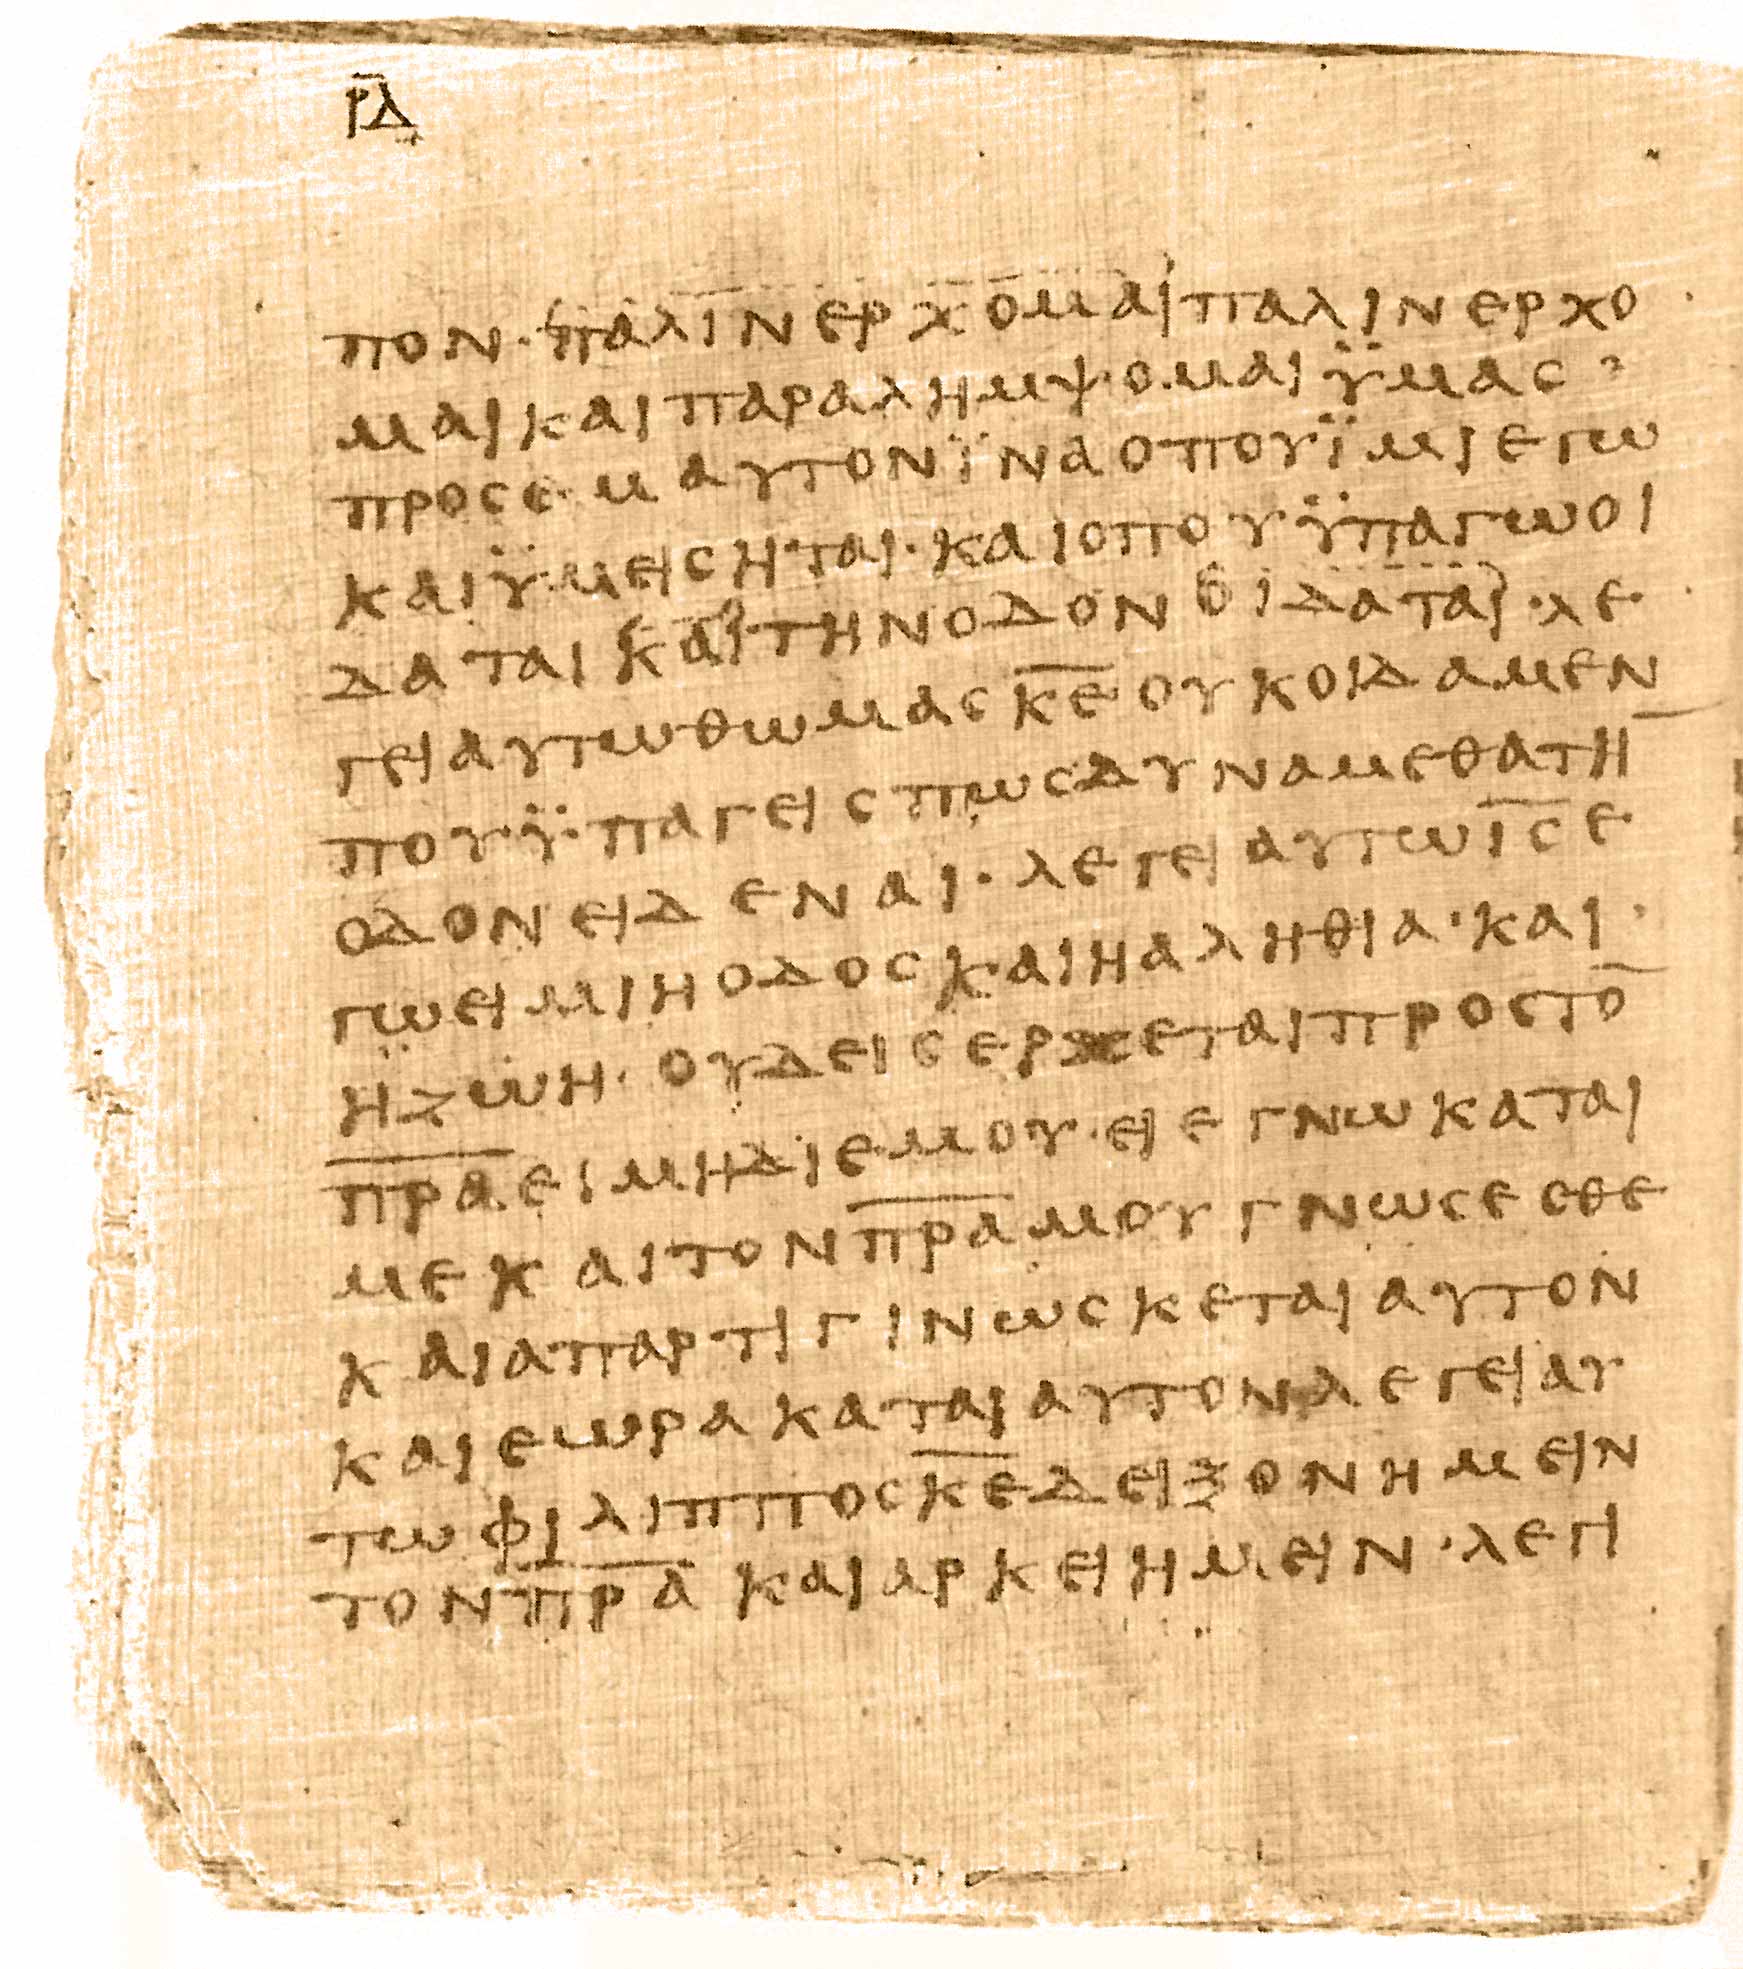 ρ̅δ̅
πον· παλινερχομαιπαλινερχο
μαικαιπαραλημψομαιϋμας
προσεμαυτονϊναοπουϊμιεγω
καιϋμεισηται· καιοπουϋπαγωοι
δαταικαιτηνοδονοιδαται·λε
γειαυτωθωμασκ̅ε̅ουκοιδαμεν
πουϋπαγεισπωσδυναμεθατη̅
οδονειδεναι·λεγειαυτωι̅ς̅ε
γωειμιηοδοσκαιηαληθια·και
ηζωη·ουδεισερχεταιπροστο̅
π̅ρ̅α̅ειμηδιεμου·ειεγνωκαται
μεκαιτονπ̅ρ̅α̅μουγνωσεσθε
καιαπαρτιγινωσκεταιαυτον
καιεωρακαταιαυτονλεγειαυ
τωφιλιπποσκ̅ε̅δειξονημειν
τονπ̅ρ̅α̅καιαρκειημειν·λεγι